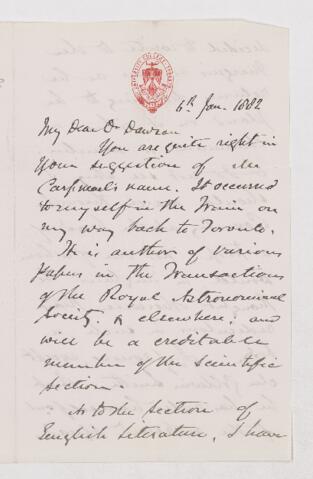 6th Jan. 1882
My Dear Dr Dawson
You are quite right in
your suggestion of
Carpmael's name. It occurred
to myself in the train on
my way back to Toronto.
He is author of various
papers in the Transactions
of the Royal Astronomical
Society, & elsewhere; and
will be a creditable
member of the scientific
section.
As to the section of
English Literature, I have